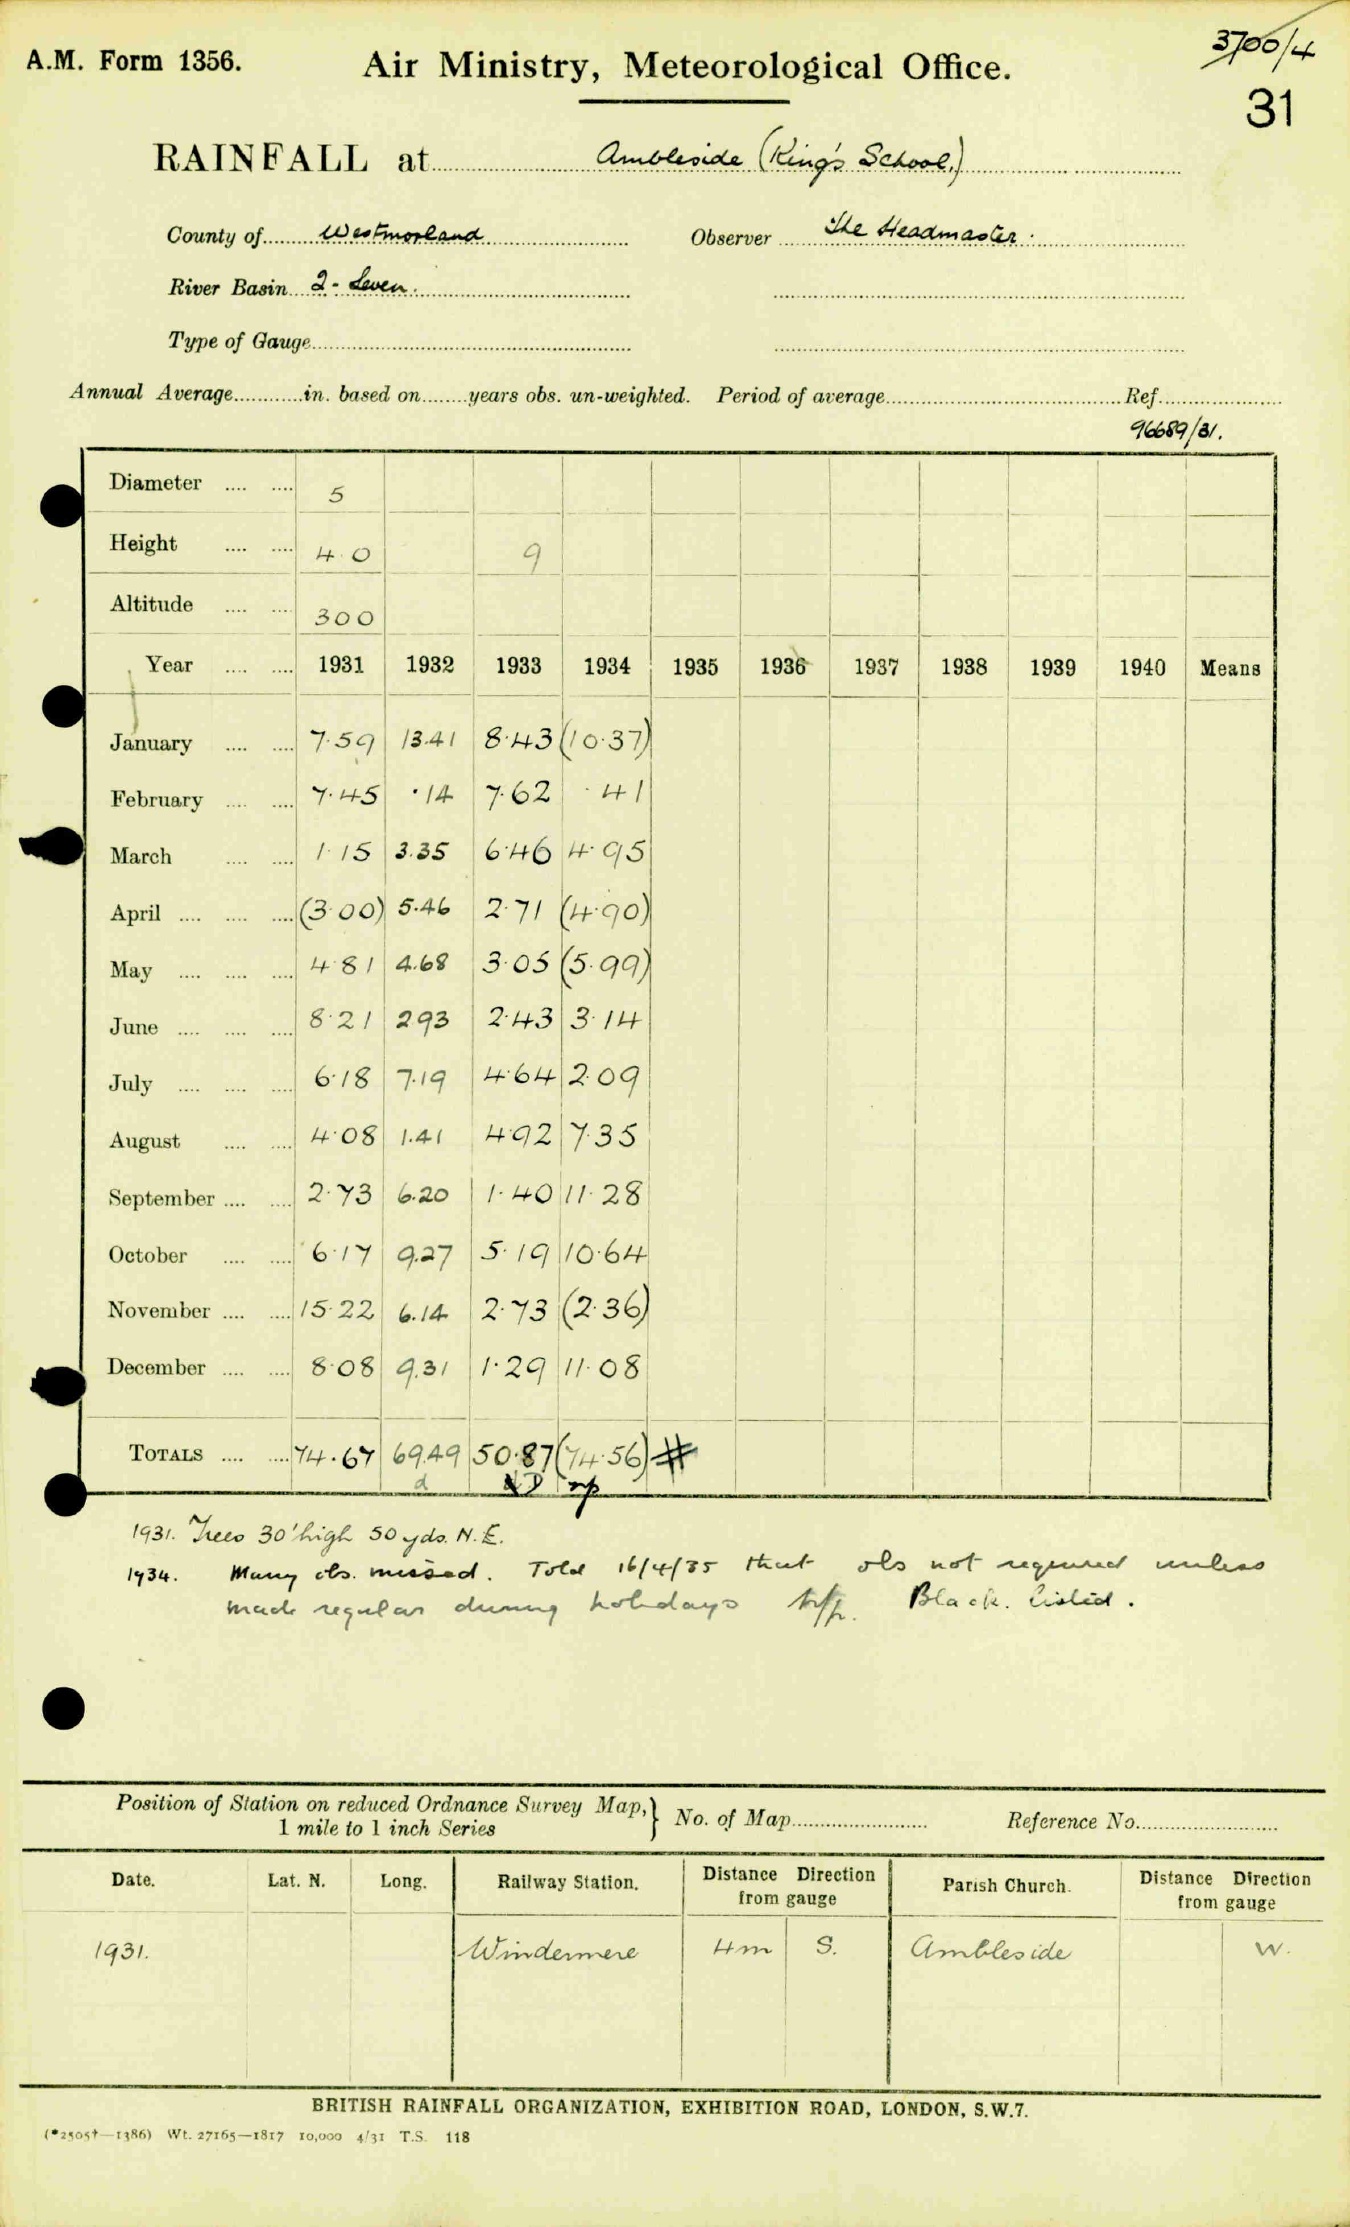 A.M. Form 1356.
Air Ministry, Meteorological Office.
3700/4
31
RAINFALL at Ambleside (King's School.)
County of Westmorland Observer The Headmaster.
River Basin 2 - Leven.
Type of Gauge
Annual Average in. based on years obs. un-weighted. Period of average Ref.
96689/31.
Diameter 5
Height 4 0 9
Altitude 300
Year 1931 1932 1933 1934 1935 1936 1937 1938 1939 1940 Means
January 7.59 13.41 8.43 (10.37)
February 7.45 .14 7.62 .41
March 1.15 3.35 6.46 4.95
April (3.00) 5.46 2.71 (4.90)
May 4.81 4.68 3.05 (5.99)
June 8.21 2.93 2.43 3.14
July 6.18 7.19 4.64 2.09
August 4.08 1.41 4.92 7.35
September 2.73 6.20 1.40 11.28
October 6.17 9.27 5.19 10.64
November 15.22 6.14 2.73 (2.36)
December 8.08 9.31 1.29 11.08
TOTALS 74.67 69.49 50.87 (74.56) #
d D
1931. Trees 30' high 50 yds. N.E.
1934. Many obs. missed. Told 16/4/35 that obs not required unless
made regular during holidays Black listed.
Position of Station on reduced Ordnance Survey Map, } No. of Map Reference No.
1 mile to 1 inch Series
Date. Lat. N. Long. Railway Station. Distance Direction from gauge Parish Church. Distance Direction from gauge
1931. Windermere 4m S. Ambleside W.
BRITISH RAINFALL ORGANIZATION, EXHIBITION ROAD, LONDON, S.W.7.
(*2505†—1386) Wt. 27165—1817 10,000 4/31 T.S. 118